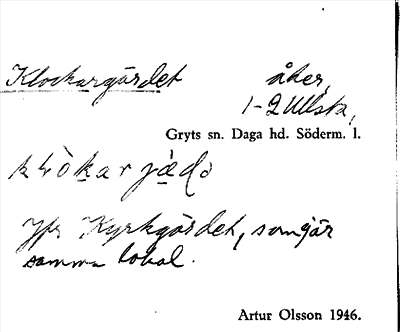 Klockargärdet åker,
1-2 Ullsta,
Gryts sn. Daga hd. Söderm. l.
Jfr Kyrkgärdet, som är
samma lokal.
Artur Olsson 1946.